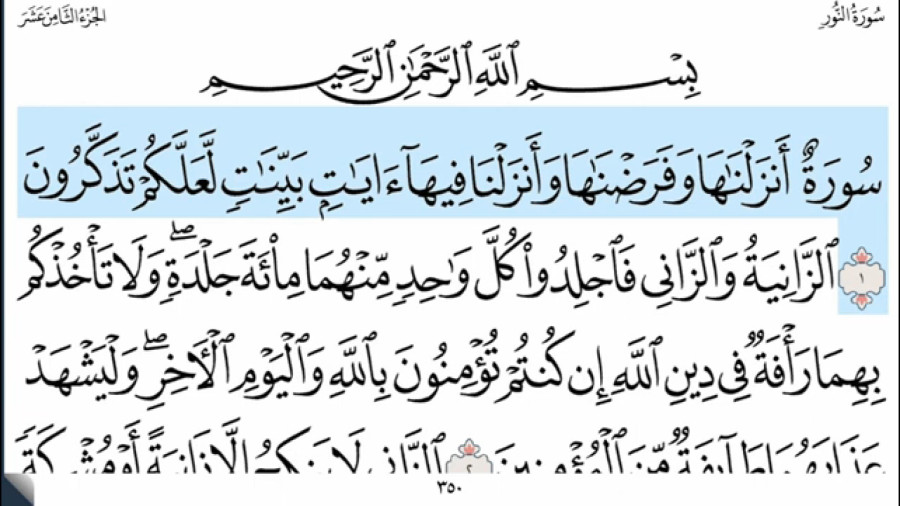 سُورَةُ النُّورِ
الجُزْءُ الثَّامِنَ عَشَرَ
بِسْمِ ٱللَّهِ ٱلرَّحْمَٰنِ ٱلرَّحِيمِ
سُورَةٌ أَنزَلْنَٰهَا وَفَرَضْنَٰهَا وَأَنزَلْنَا فِيهَآ ءَايَٰتِۭ بَيِّنَٰتٍ لَّعَلَّكُمْ تَذَكَّرُونَ
١ ٱلزَّانِيَةُ وَٱلزَّانِى فَٱجْلِدُوا۟ كُلَّ وَٰحِدٍ مِّنْهُمَا مِا۟ئَةَ جَلْدَةٍ ۖ وَلَا تَأْخُذْكُم
بِهِمَا رَأْفَةٌ فِى دِينِ ٱللَّهِ إِن كُنتُمْ تُؤْمِنُونَ بِٱللَّهِ وَٱلْيَوْمِ ٱلْءَاخِرِ ۖ وَلْيَشْهَدْ
عَذَابَهُمَا طَآئِفَةٌ مِّنَ ٱلْمُؤْمِنِينَ ٢ ٱلزَّانِى لَا يَنكِحُ إِلَّا زَانِيَةً أَوْ مُشْرِكَةً
٣٥٠